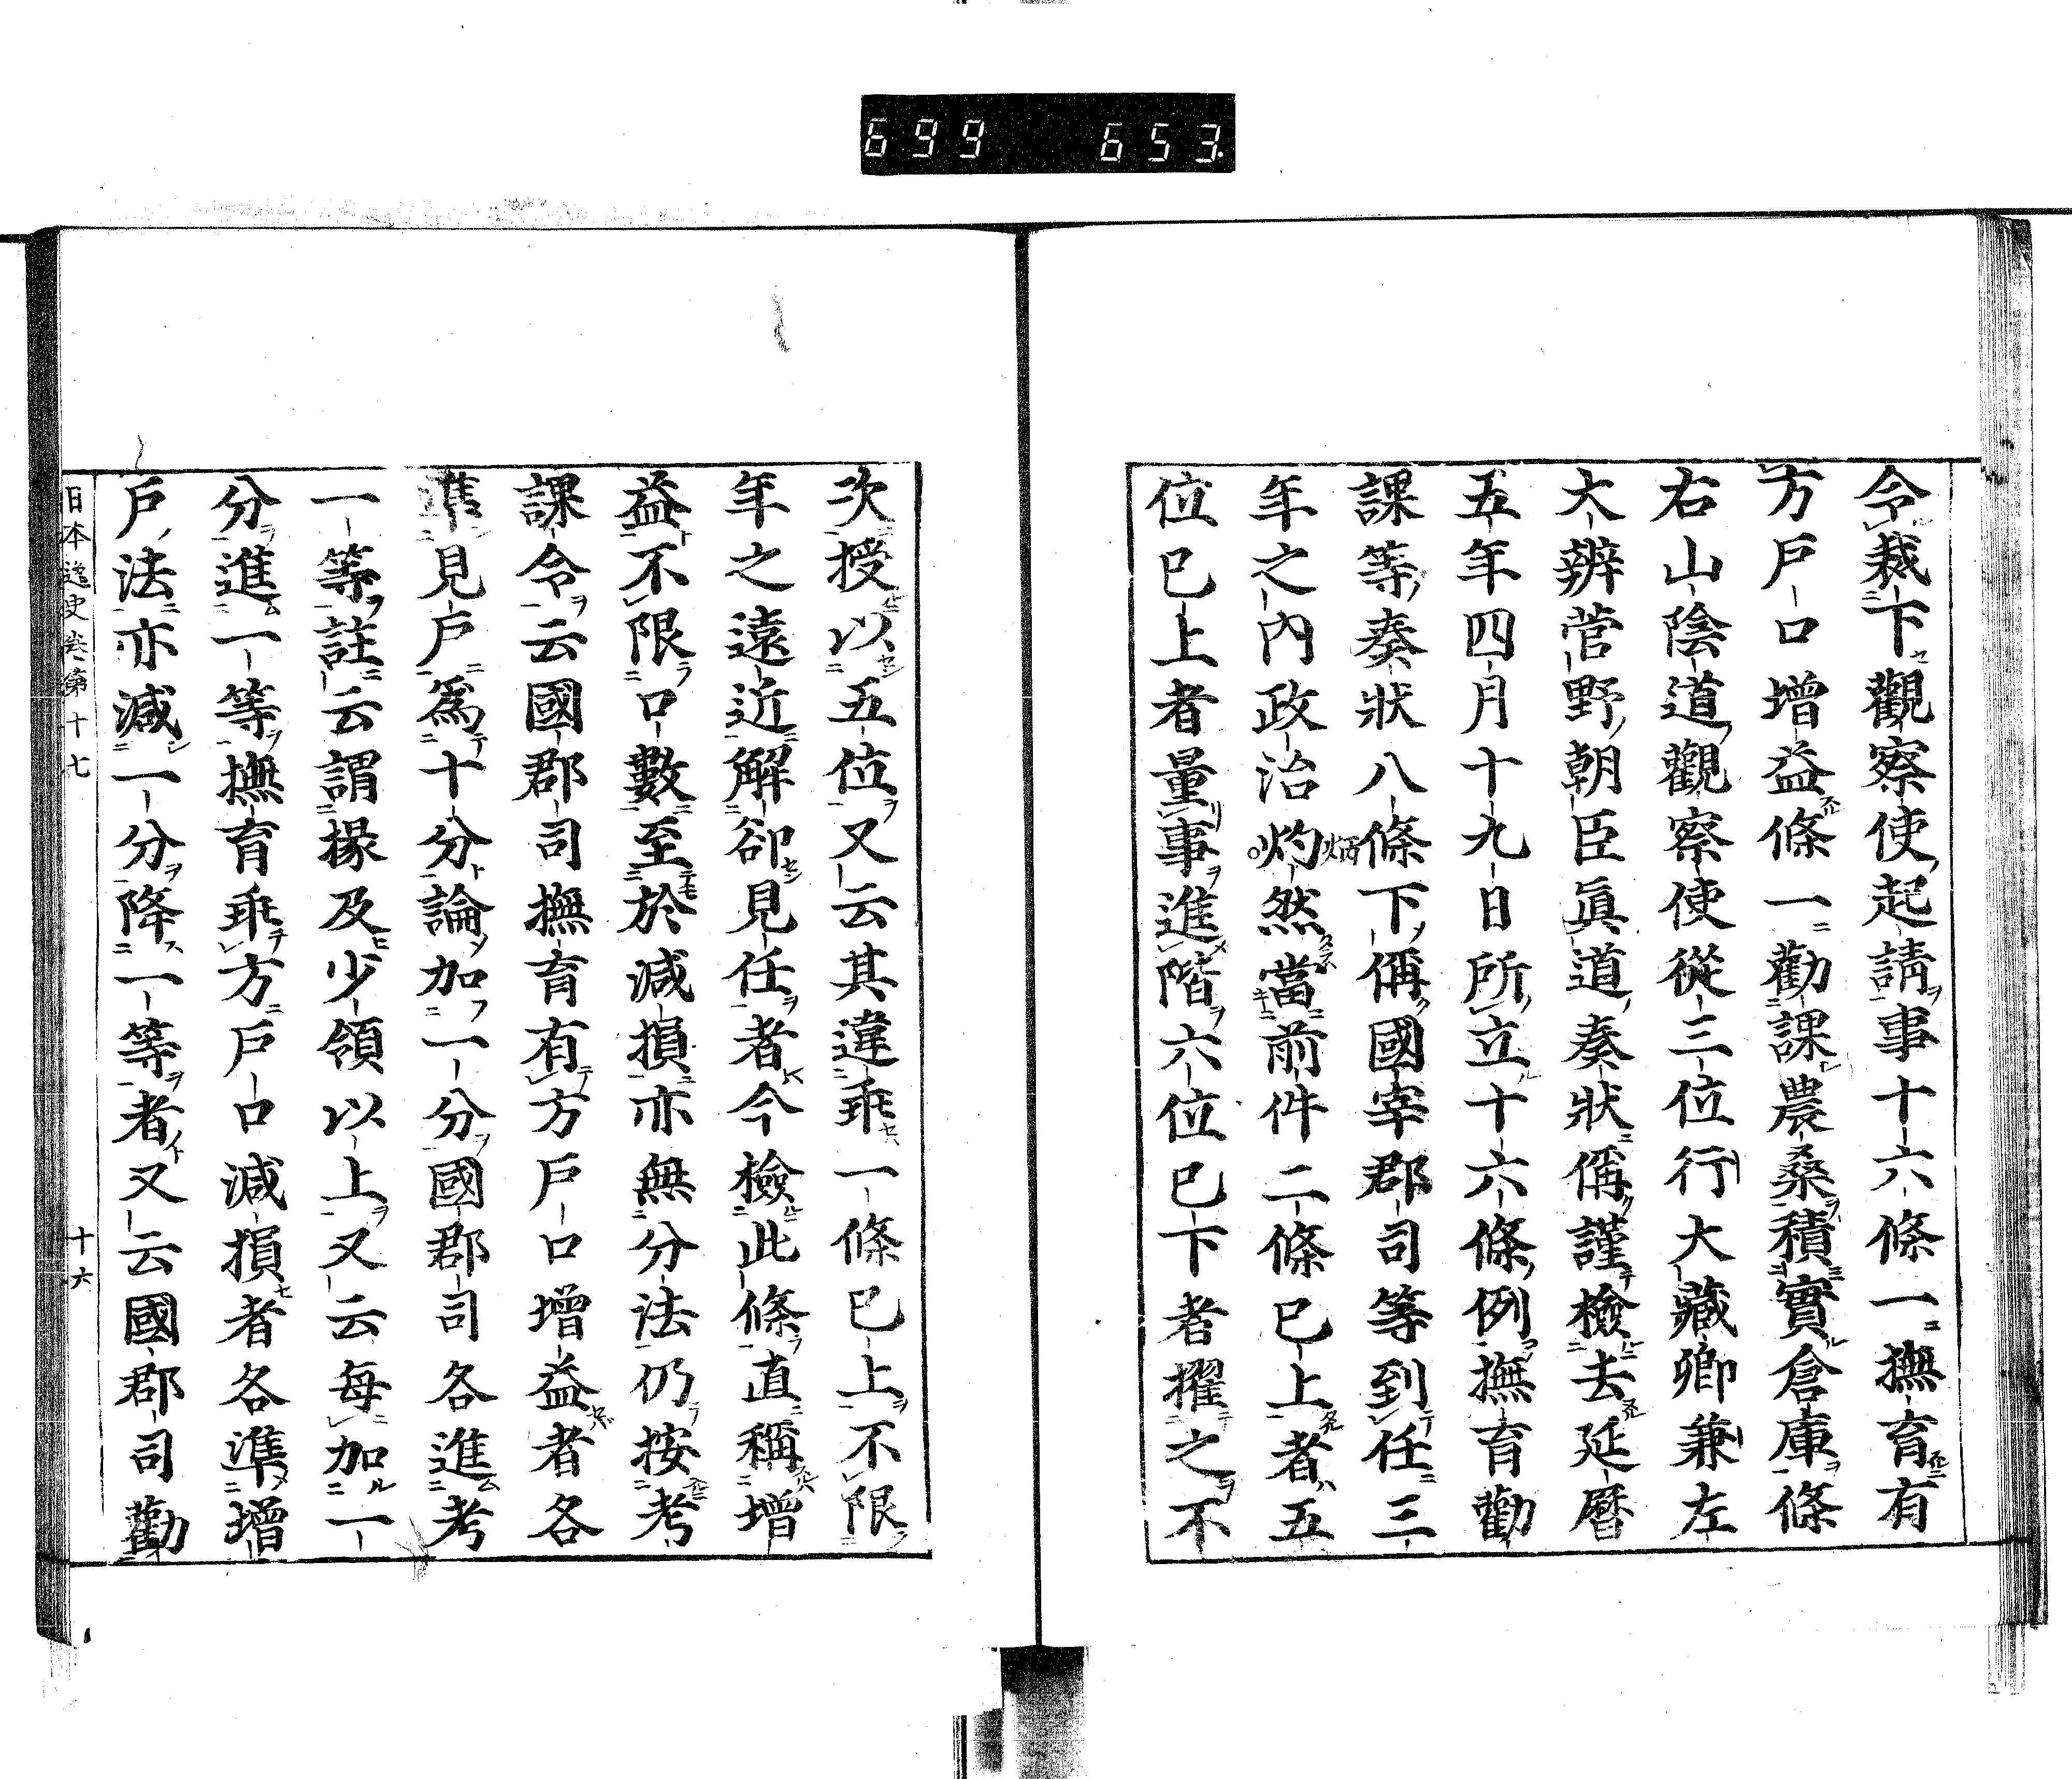 699 653.
令裁下觀察使起請事十六條一撫育有
方戶口增益條一勸課農桑積實倉庫條
右山陰道觀察使從三位行大藏卿兼左
大辨菅野朝臣眞道奏狀偁謹檢去延曆
五年四月十九日所立十六條例撫育勸
課等奏狀八條下偁國宰郡司等到任三
年之內政治灼然當前件二條已上者五
炳
位已上者量事進階六位已下者擢之不
次授以五位又云其違乖一條已上不限
年之遠近解卻見任者今檢此條直稱增
益不限口數至於減損亦無分法仍按考
課令云國郡司撫育有方戶口增益者各
準見戶爲十分論加一分國郡司各進考
一等註云謂掾及少領以上又云每加一
分進一等撫育乖方戶口減損者各準增
戶法亦減一分降一等者又云國郡司勸
日本逸史卷第十七 十六